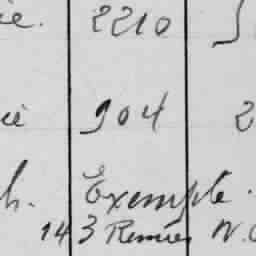 ie. 2210
ie 904 2
h. Exemple.
143 Remies N.